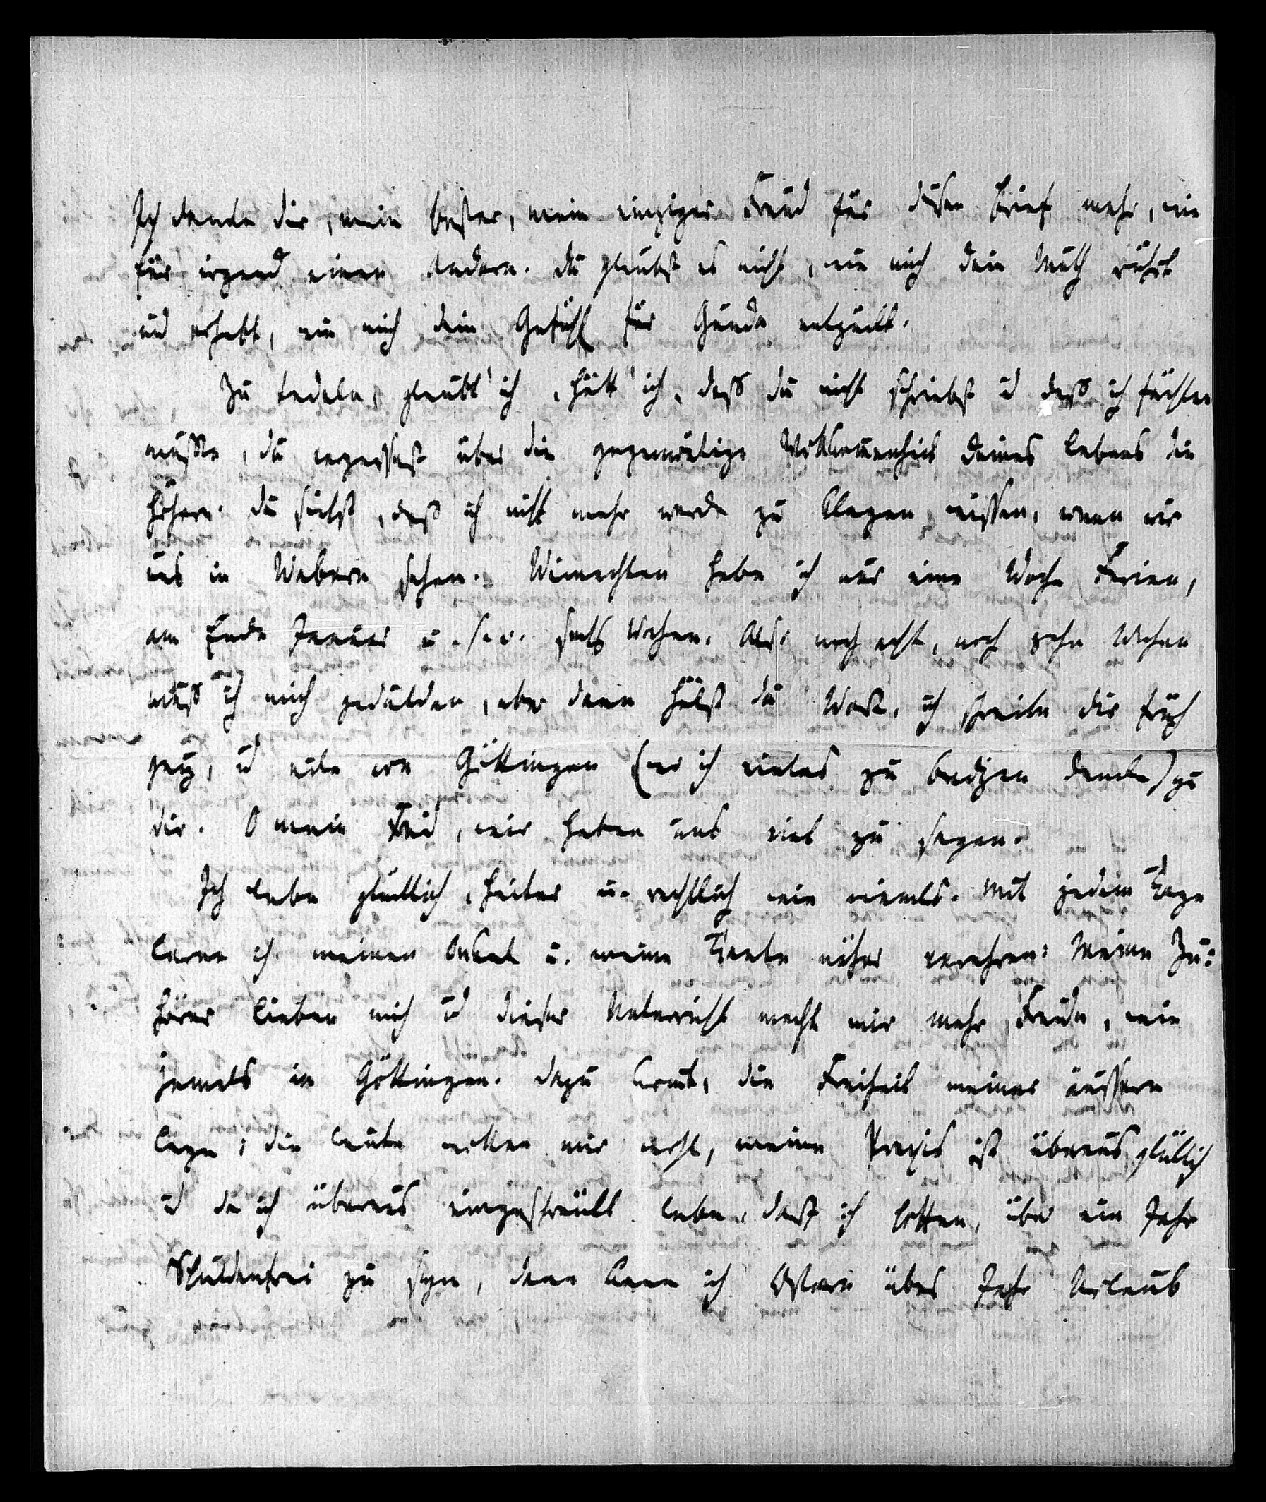 Ich danke dir, mein bester, mein einziger Freund für diesen Brief mehr, wie
für irgend einen Andern. Du glaubst es nicht, wie mich dein Muth rührt
und erhebt, wie mich dein Gefühl für Gunda
Zu tadeln, glaubt' ich, hätt' ich, daß du nicht schriebst u daß ich fürchten
müßte, du vergessest über die gegenwärtige Vollkommenheit deines Lebens die
höhere. Du siehst, daß ich nicht mehr werde zu klagen wissen, wenn wir
uns in Wabern sehen. Weinachten habe ich nur eine Woche Ferien,
am Ende Januar u.s.w. sechs Wochen. Also noch acht, noch zehn Wochen
muß ich mich gedulden, aber dann hälst du Wort, ich schreibe dir früh
gnug, u eile von Göttingen (wo ich vieles zu denke) zu
dir. O mein Freund, wir haben uns viel zu sagen.
Ich lebe glücklich, heiter u. rechtlich wie niemals. Mit jedem Tage
lerne ich meinen Onkel u. meine Tante näher verehren: Meine Zu:
hörer lieben mich u dieser Unterricht macht mir mehr Freude, wie
jemals in Göttingen. Dazu komt, die Freiheit meiner äussern
Lage; die Leute wollen mir wohl, meine Praxis ist überaus glüklich
u da ich überaus eingeschränkt lebe, darf ich hoffen, über ein Jahr
Schuldenfrei zu seyn, dann kann ich Ostern über Jahr Urlaub